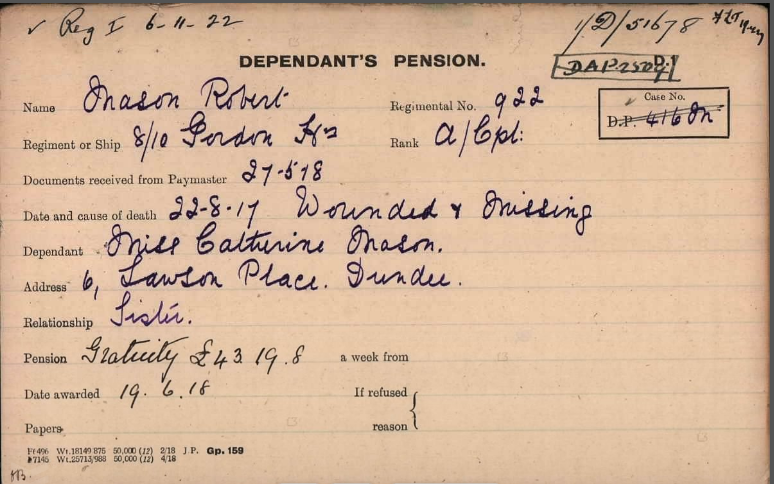 ✓ Reg I 6-11-22
1/D/51678
DEPENDANT'S PENSION.
Name Mason Robert Regimental No. 922
Case No.
D.P. 416 M
Regiment or Ship 8/10 Gordon Hrs Rank A/Cpl:
Documents received from Paymaster 27-5-18
Date and cause of death 22-8-17 Wounded & Missing
Dependant Miss Catherine Mason.
Address 6, Lawson Place. Dundee.
Relationship Sister.
Pension Gratuity £43.19.8 a week from
Date awarded 19.6.18 If refused
Papers reason
Ff496 Wt.18149/875 50,000 (12) 2/18 J.P. Gp. 159
F7145 Wt.25713/988 50,000 (12) 4/18